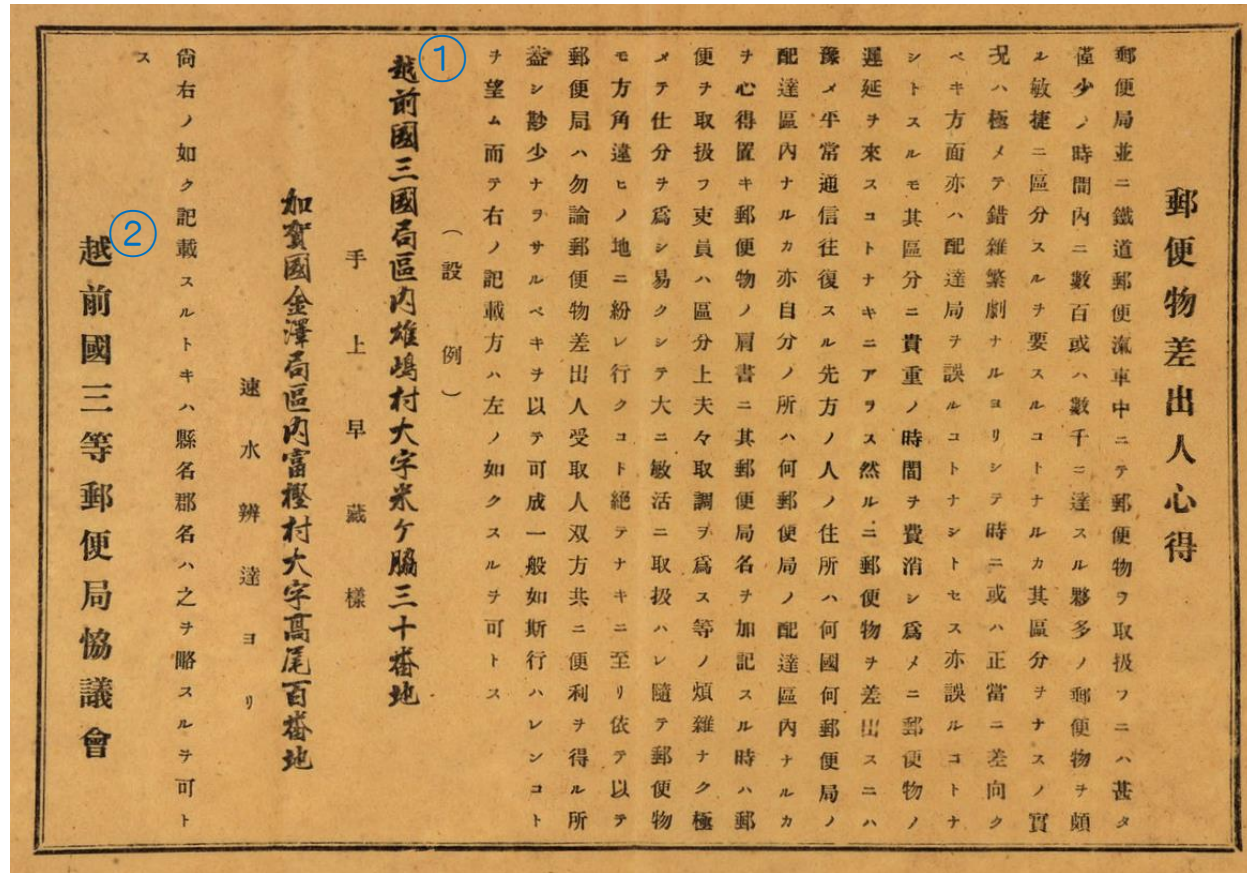 郵便物差出人心得
郵便局並ニ鐵道郵便滊車中ニテ郵便物ヲ取扱フニハ甚タ
僅少ノ時間內ニ數百或ハ數千ニ達スル夥多ノ郵便物ヲ頗
ル敏捷ニ區分スルヲ要スルコトナルカ其區分ヲナスノ實
況ハ極メテ錯雜繁劇ナルヨリシテ時ニ或ハ正當ニ差向ク
ベキ方面亦ハ配達局ヲ誤ルコトナシトセス亦誤ルコトナ
シトスルモ其區分ニ貴重ノ時間ヲ費消シ爲メニ郵便物ノ
遲延ヲ來スコトナキニアラス然ルニ郵便物ヲ差出スニハ
豫メ平常通信往復スル先方ノ人ノ住所ハ何國何郵便局ノ
配達區內ナルカ亦自分ノ所ハ何郵便局ノ配達區內ナルカ
ヲ心得置キ郵便物ノ肩書ニ其郵便局名ヲ加記スル時ハ郵
便ヲ取扱フ吏員ハ區分上夫々取調ヲ爲ス等ノ煩雜ナク極
メテ仕分ヲ爲シ易クシテ大ニ敏活ニ取扱ハレ隨テ郵便物
モ方角違ヒノ地ニ紛レ行クコト絕テナキニ至リ依テ以テ
郵便局ハ勿論郵便物差出人受取人双方共ニ便利ヲ得ル所
蓋シ尠少ナヲサルベキヲ以テ可成一般如斯行ハレンコト
ヲ望ム而テ右ノ記載方ハ左ノ如クスルヲ可トス
(設例)
①
越前國三國局區内雄嶋村大字米ケ脇三十番地
手上早藏樣
加賀國金澤局區内富樫村大字高尾百番地
速水辨達ヨリ
尙右ノ如ク記載スルトキハ縣名郡名ハ之ヲ略スルヲ可ト
ス
②
越前國三等郵便局協議會